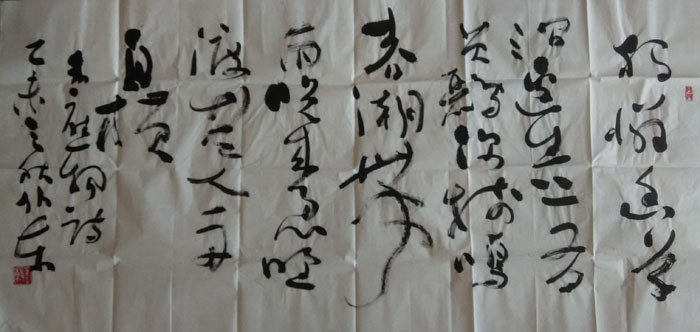 独憐幽草
澗邊生上有
黄鸝深樹鳴
春潮帶
雨晚來急野
渡無人舟
自横
韋應物詩
乙未之秋